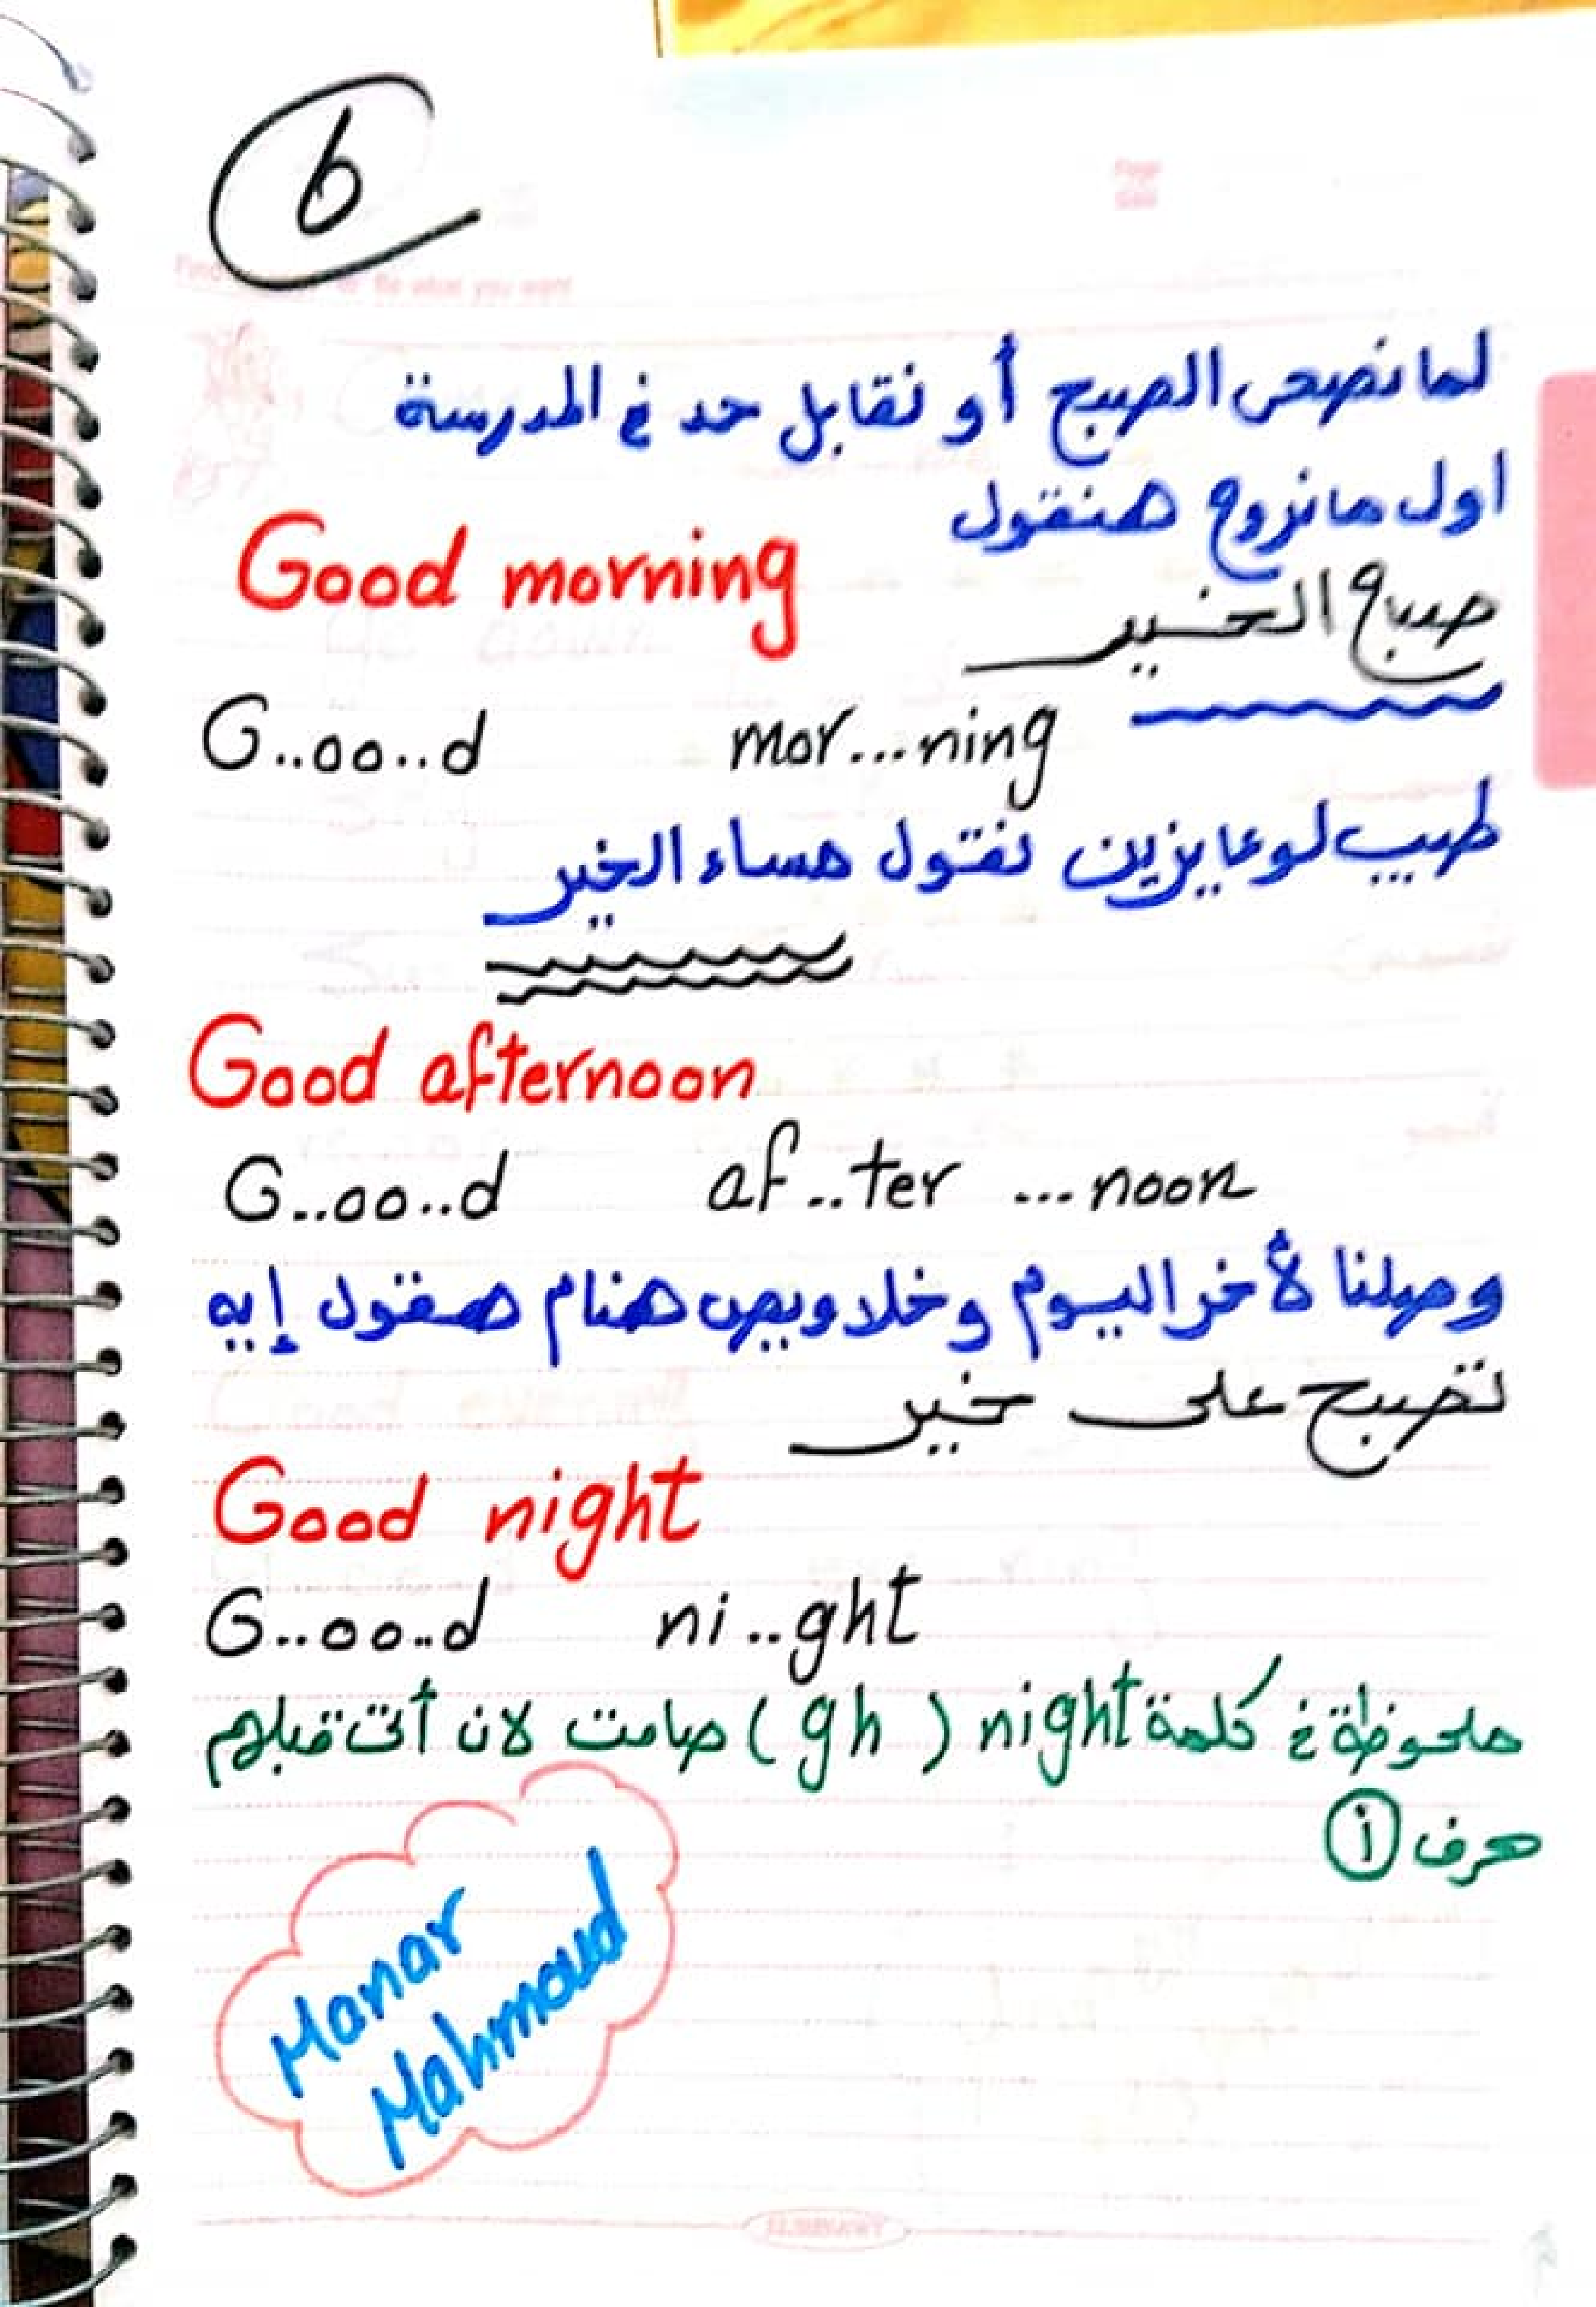 6
Page
Date
Be what you want
لما نصحى الصبح أو نقابل حد في المدرسة
اول ما نروح هنقول
Good morning
صباح الخير
G..oo..d mor...ning
طيب لو عايزين نقول مساء الخير
Good afternoon
G..oo..d af..ter ...noon
وصلنا لأخر اليوم وخلاص هنام هنقول إيه
تصبح على خير
Good night
G..oo..d ni..ght
ملحوظة في كلمة night (gh) صامت لان أتى قبلهم
حرف i
Manar
Mahmoud